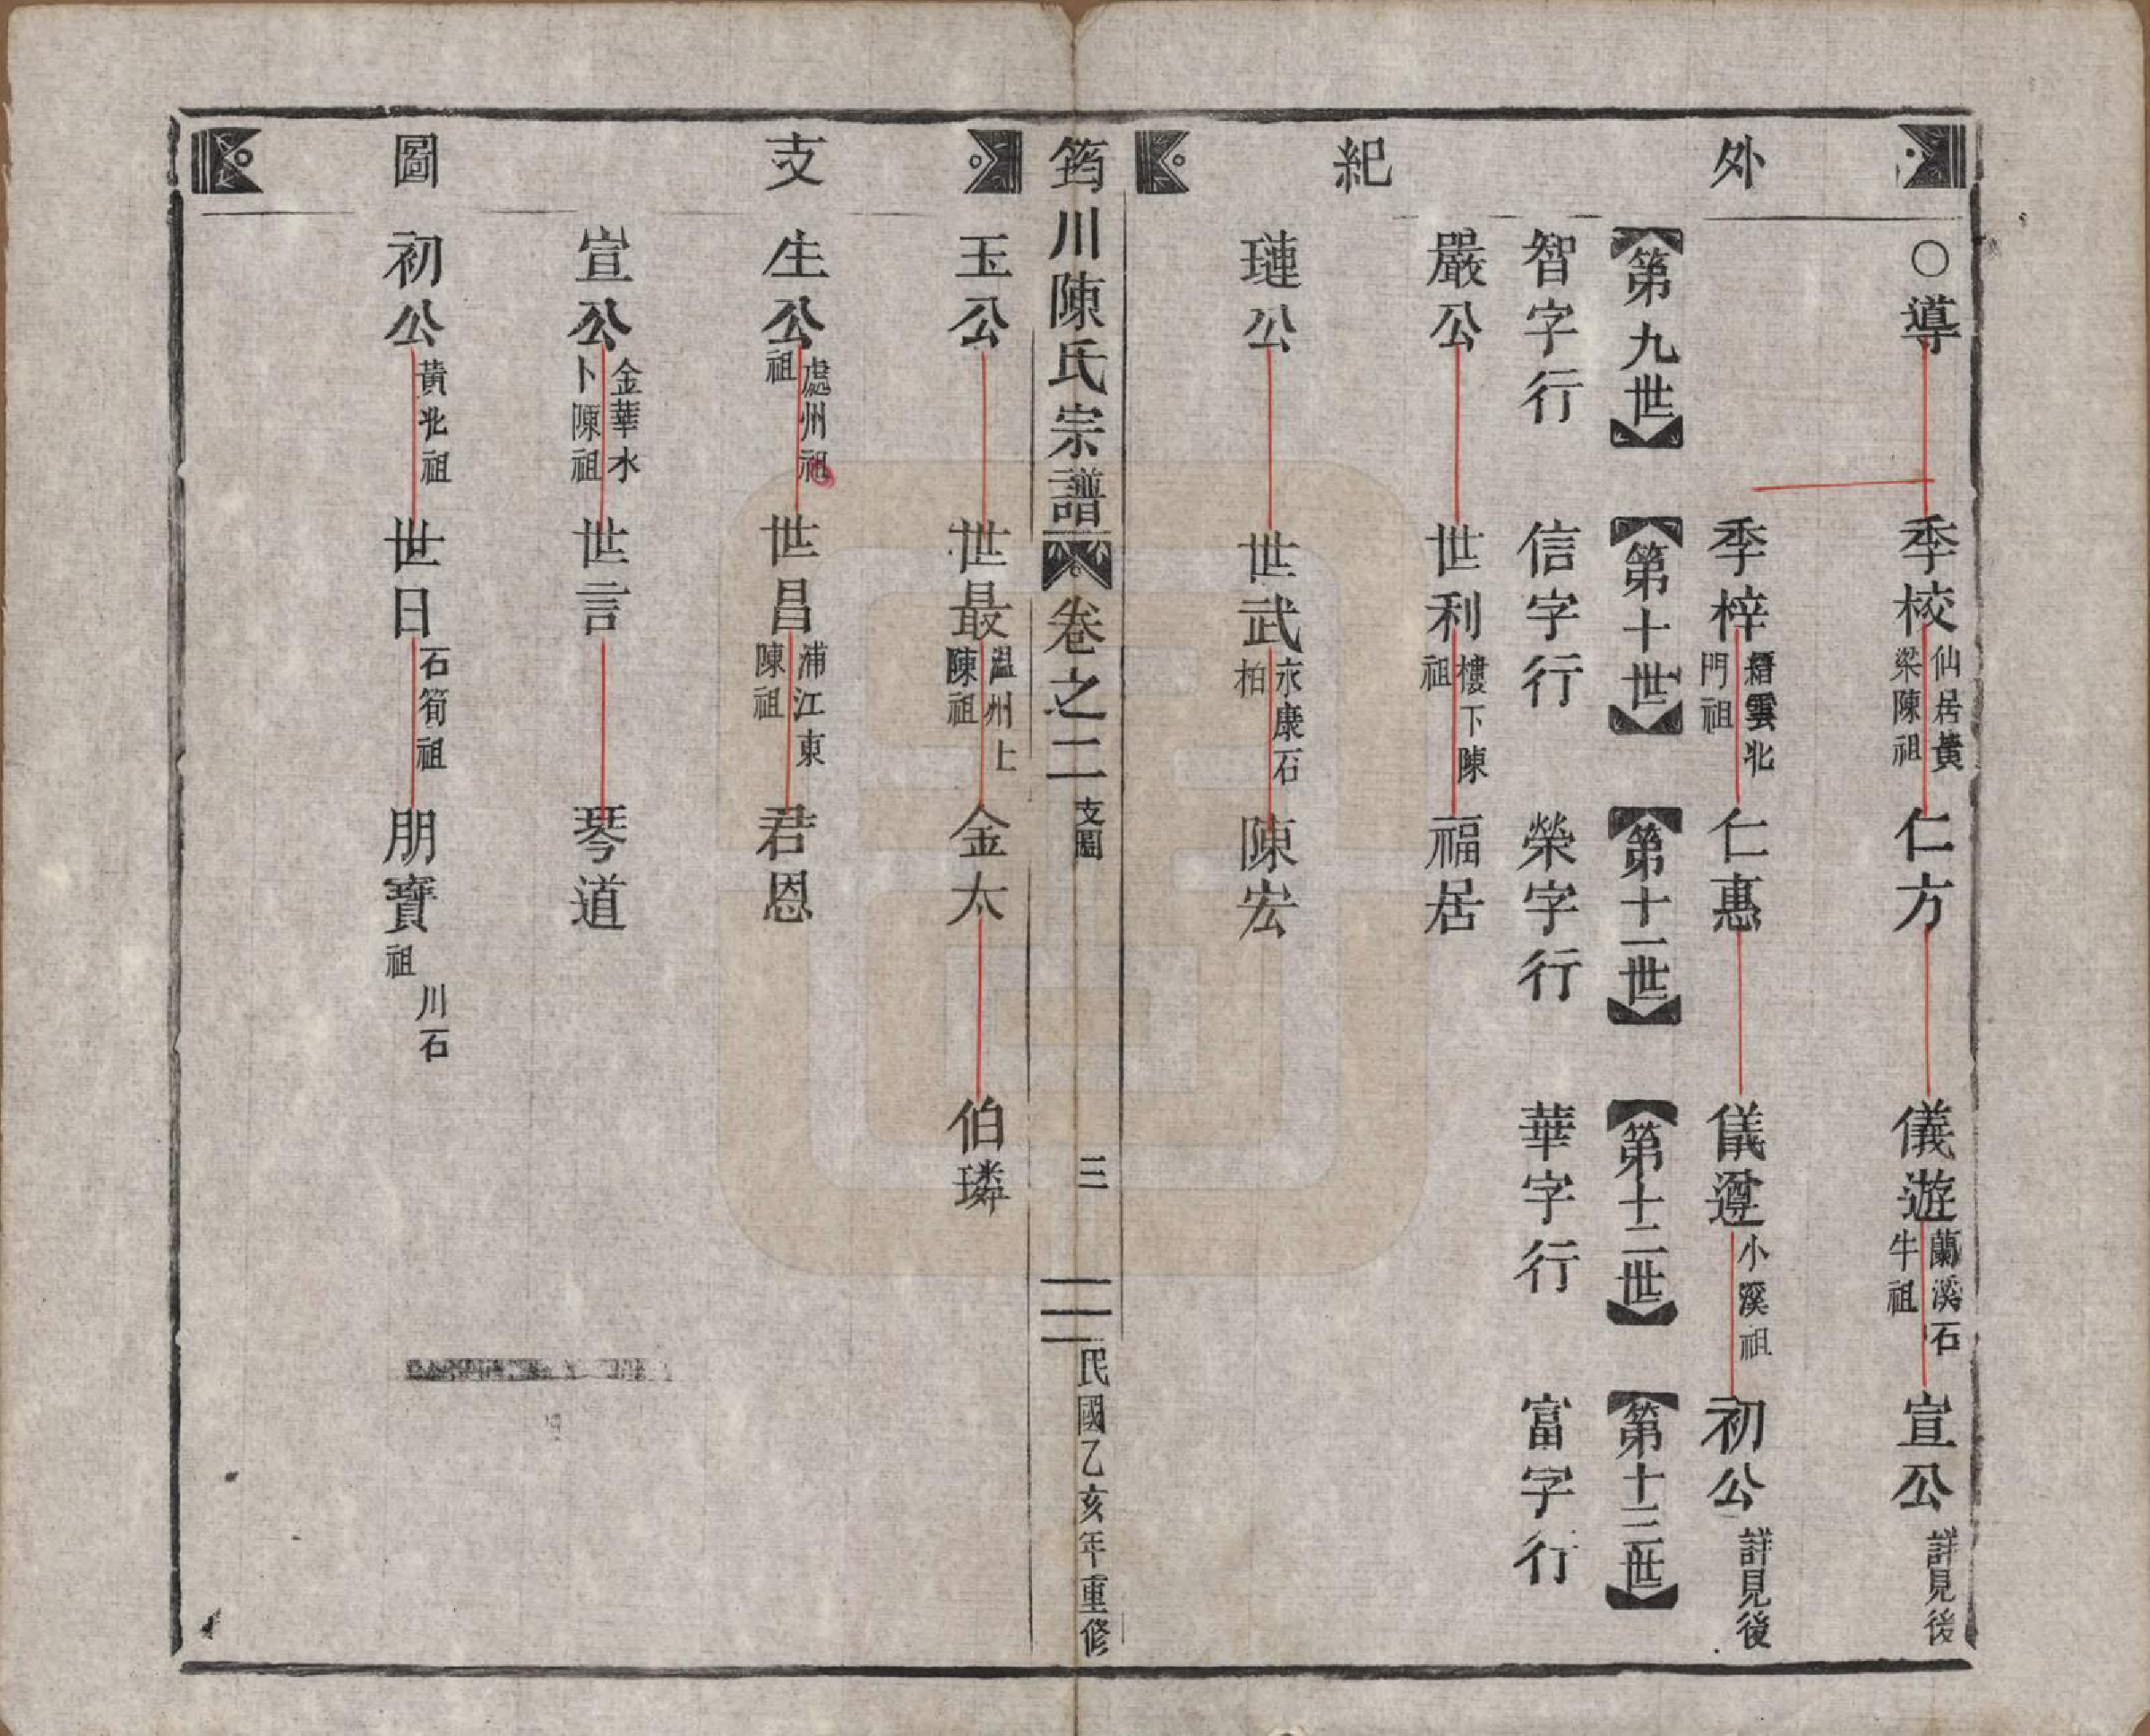 外紀
○導
季校 仙居黃梁陳祖
仁方
儀遊 蘭溪石牛祖
宣公 詳見後
季梓 縉雲北門祖
仁惠
儀遵 小溪祖
初公 詳見後
【第九世】
【第十世】
【第十一世】
【第十二世】
【第十三世】
智字行
信字行
榮字行
華字行
富字行
嚴公
世利 樓下陳祖
福居
璉公
世武 永康石柏
陳宏
筠川陳氏宗譜
卷之二 支圖
三
民國乙亥年重修
支圖
玉公
世最 溫州上陳祖
金太
伯璘
生公 處州祖祖
世昌 浦江東陳祖
君恩
宣公 金華水卜陳祖
世言
琴道
初公 黃北祖
世日 石筍祖
朋寶 川石祖